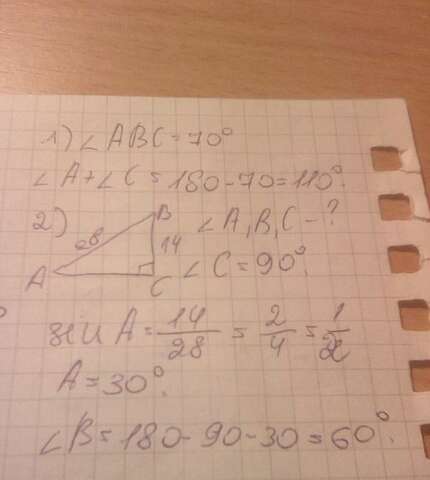 1) ∠ABC = 70°
∠A + ∠C = 180 - 70 = 110°.
2) B ∠A, B, C - ?
28 14
A C ∠C = 90°.
sin A = 14/28 = 2/4 = 1/2
A = 30°.
∠B = 180 - 90 - 30 = 60°.